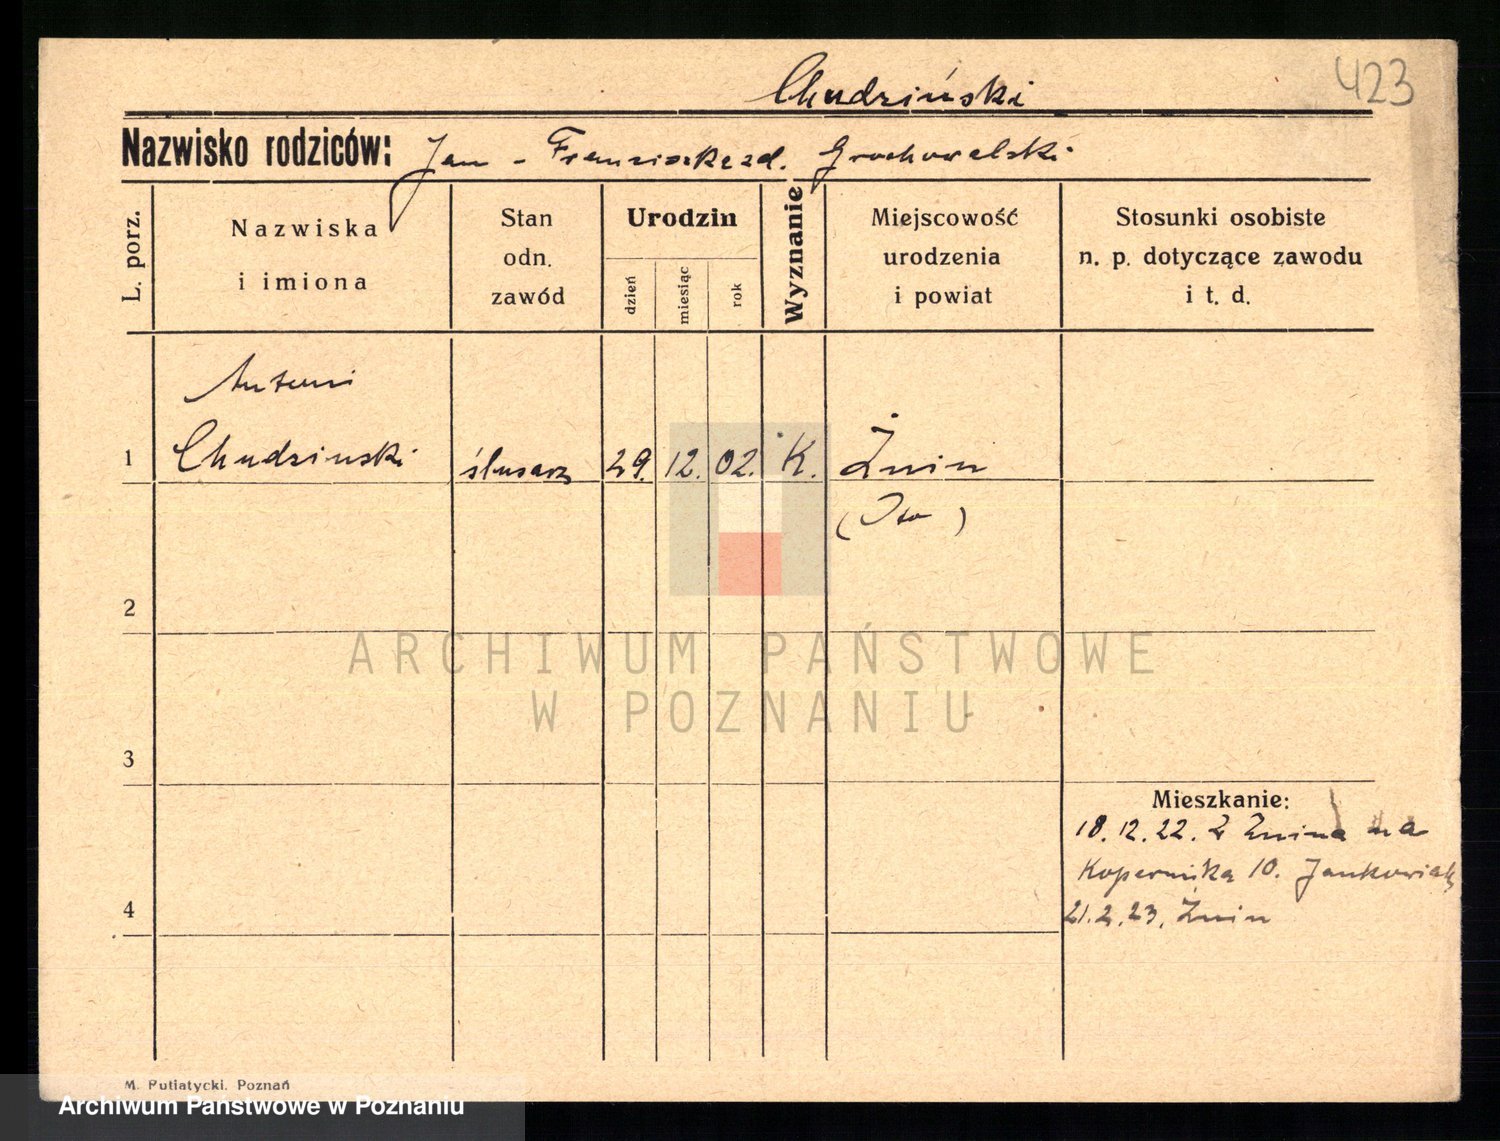 Chudziński
423
Nazwisko rodziców: Jan - Franciszka zd. Grochowalski
L. porz.
Nazwiska i imiona
Stan odn. zawód
Urodzin
dzień
miesiąc
rok
Wyznanie
Miejscowość urodzenia i powiat
Stosunki osobiste n. p. dotyczące zawodu i t. d.
Antoni
1 Chudzinski ślusarz 29. 12. 02. K. Żnin
2
3
4
Mieszkanie:
18. 12. 22. z Żnina na
Kopernika 10. Jankowiak
21.2.23, Żnin
ARCHIWUM PAŃSTWOWE
W POZNANIU
M. Putiatycki. Poznań
Archiwum Państwowe w Poznaniu